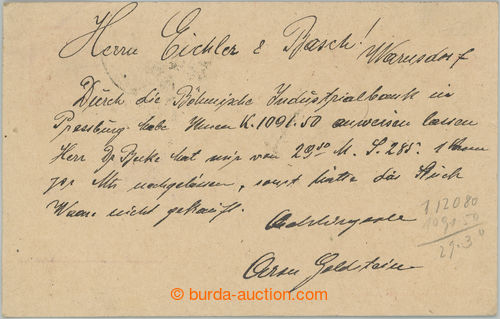 Herrn Eichler & Basch!
Warnsdorf
Durch die Böhmische Industrialbank in
Pressburg habe Ihnen K. 1091.50 anweisen lassen
Herr Beke hat mir von 29⁵⁰ M. S. 285. 1 Kron
per Mtr nachgelassen, sonst hätte das Stück
Waare nicht gekauft.
Achtungsvoll
Aron Goldstein
1120 80
1091.50
29.30
burda-auction.com